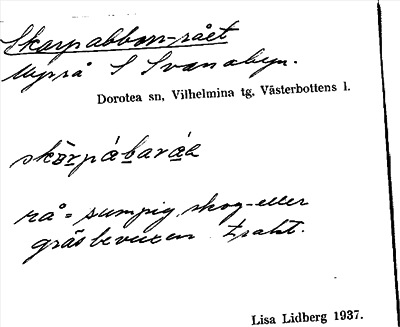 Skarpabborr-rået
Myrrå S Svanabyn.
Dorotea sn, Vilhelmina tg. Västerbottens l.
rå = sumpig, skog- eller
gräsbevuxen trakt.
Lisa Lidberg 1937.